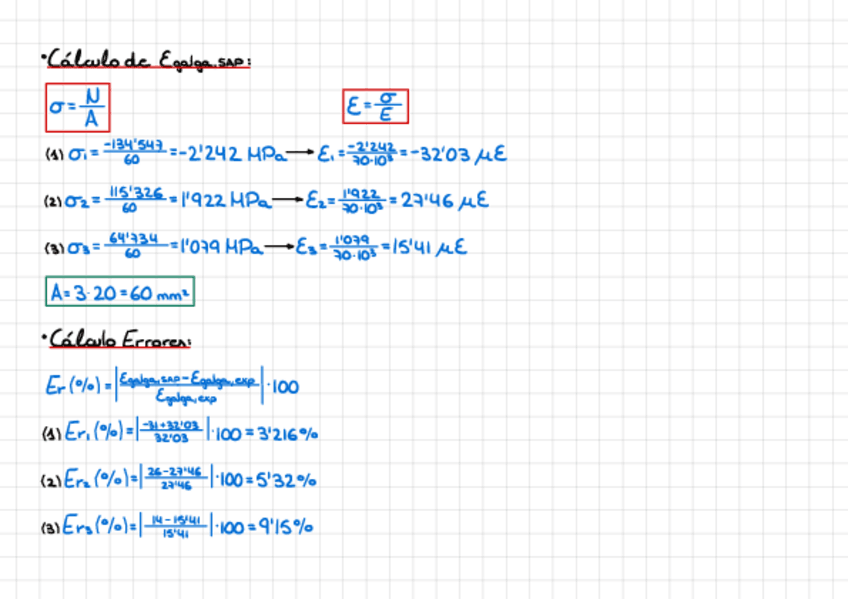 ·Cálculo de εgalga,SAP:
σ = N/A    ε = σ/E
(1) σ₁ = -134'547/60 = -2'242 MPa → ε₁ = -2'242/70·10³ = -32'03 με
(2) σ₂ = 115'326/60 = 1'922 MPa → ε₂ = 1'922/70·10³ = 27'46 με
(3) σ₃ = 64'734/60 = 1'079 MPa → ε₃ = 1'079/70·10³ = 15'41 με
A = 3·20 = 60 mm²
·Cálculo Errores:
Er (%) = |εgalga,SAP - εgalga,exp / εgalga,exp| · 100
(1) Er₁ (%) = |-31+32'03 / 32'03| · 100 = 3'216%
(2) Er₂ (%) = |26-27'46 / 27'46| · 100 = 5'32%
(3) Er₃ (%) = |14-15'41 / 15'41| · 100 = 9'15%